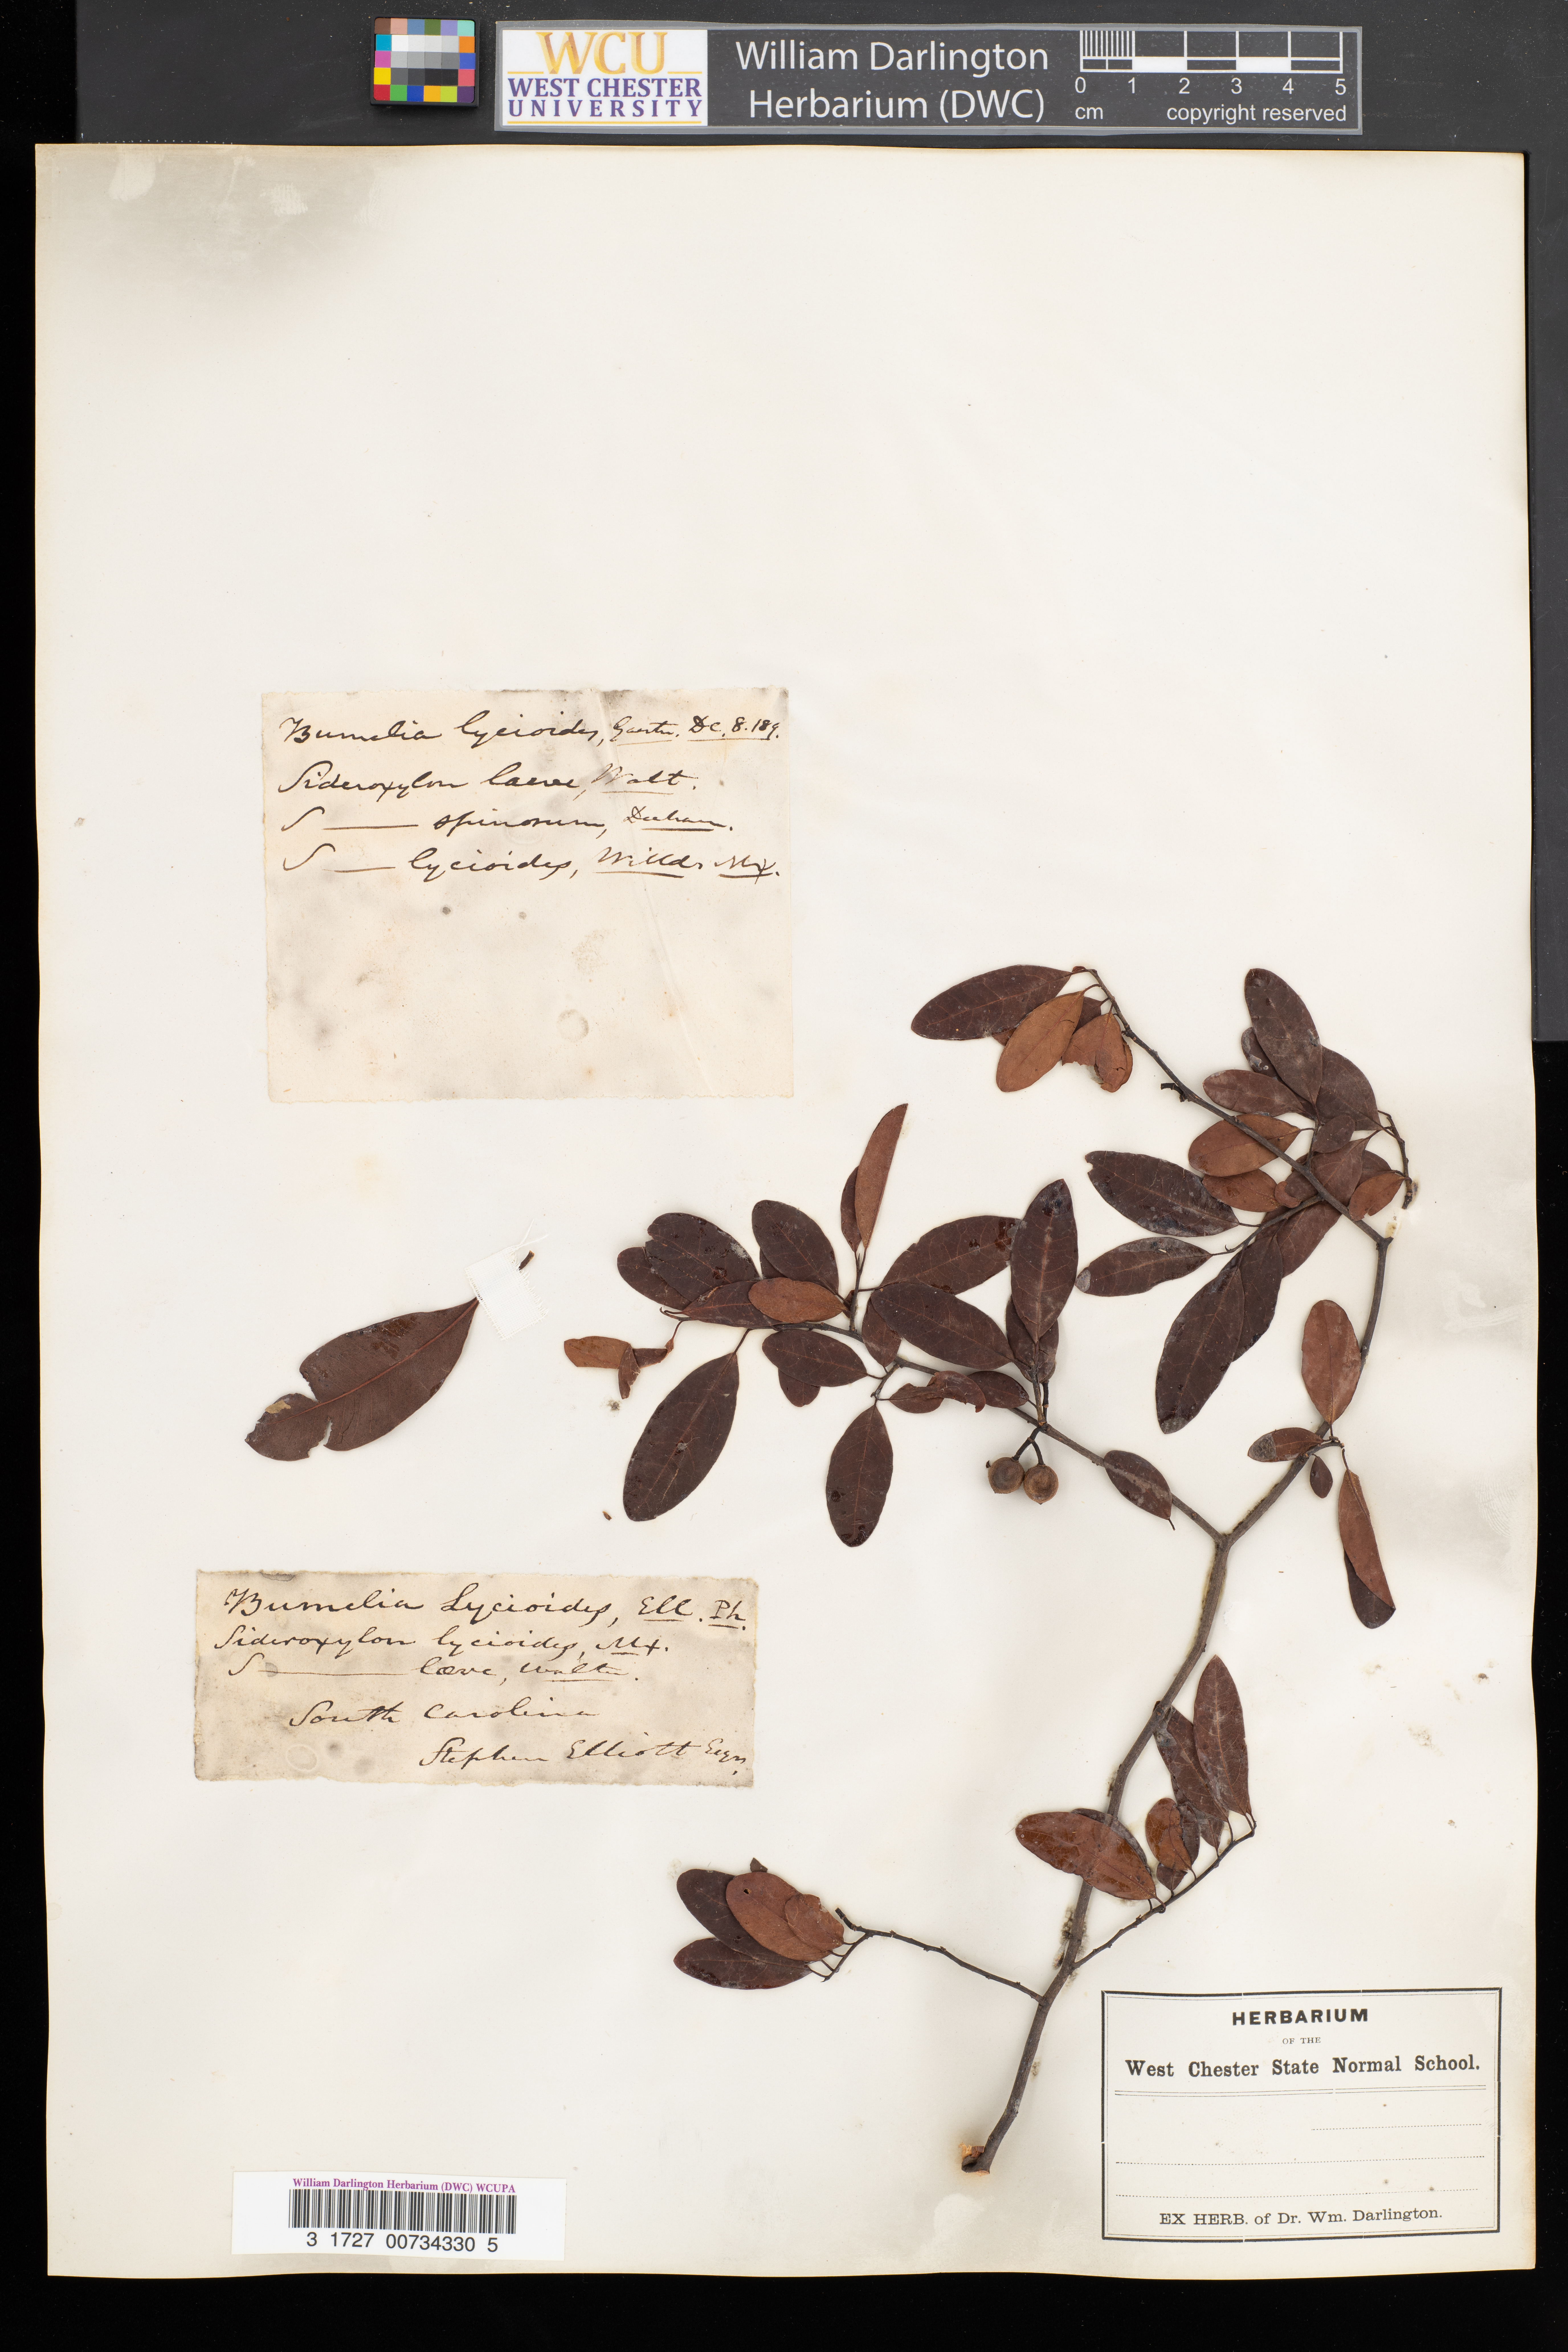 WCU
WEST CHESTER
UNIVERSITY
William Darlington
Herbarium (DWC)
0 1 2 3 4 5
cm copyright reserved
Bumelia lycioides, Gaertn. DC. 8. 189.
Sideroxylon laeve, Walt.
S —— spinosum, Duham.
S — lycioides, Willd. Mx.
Bumelia Lycioides, Ell. Ph.
Sideroxylon lycioides, Mx.
S —— læve, Walter.
South Carolina
Stephen Elliott Esqr.
HERBARIUM
OF THE
West Chester State Normal School.
EX HERB. of Dr. Wm. Darlington.
William Darlington Herbarium (DWC) WCUPA
3 1727 00734330 5